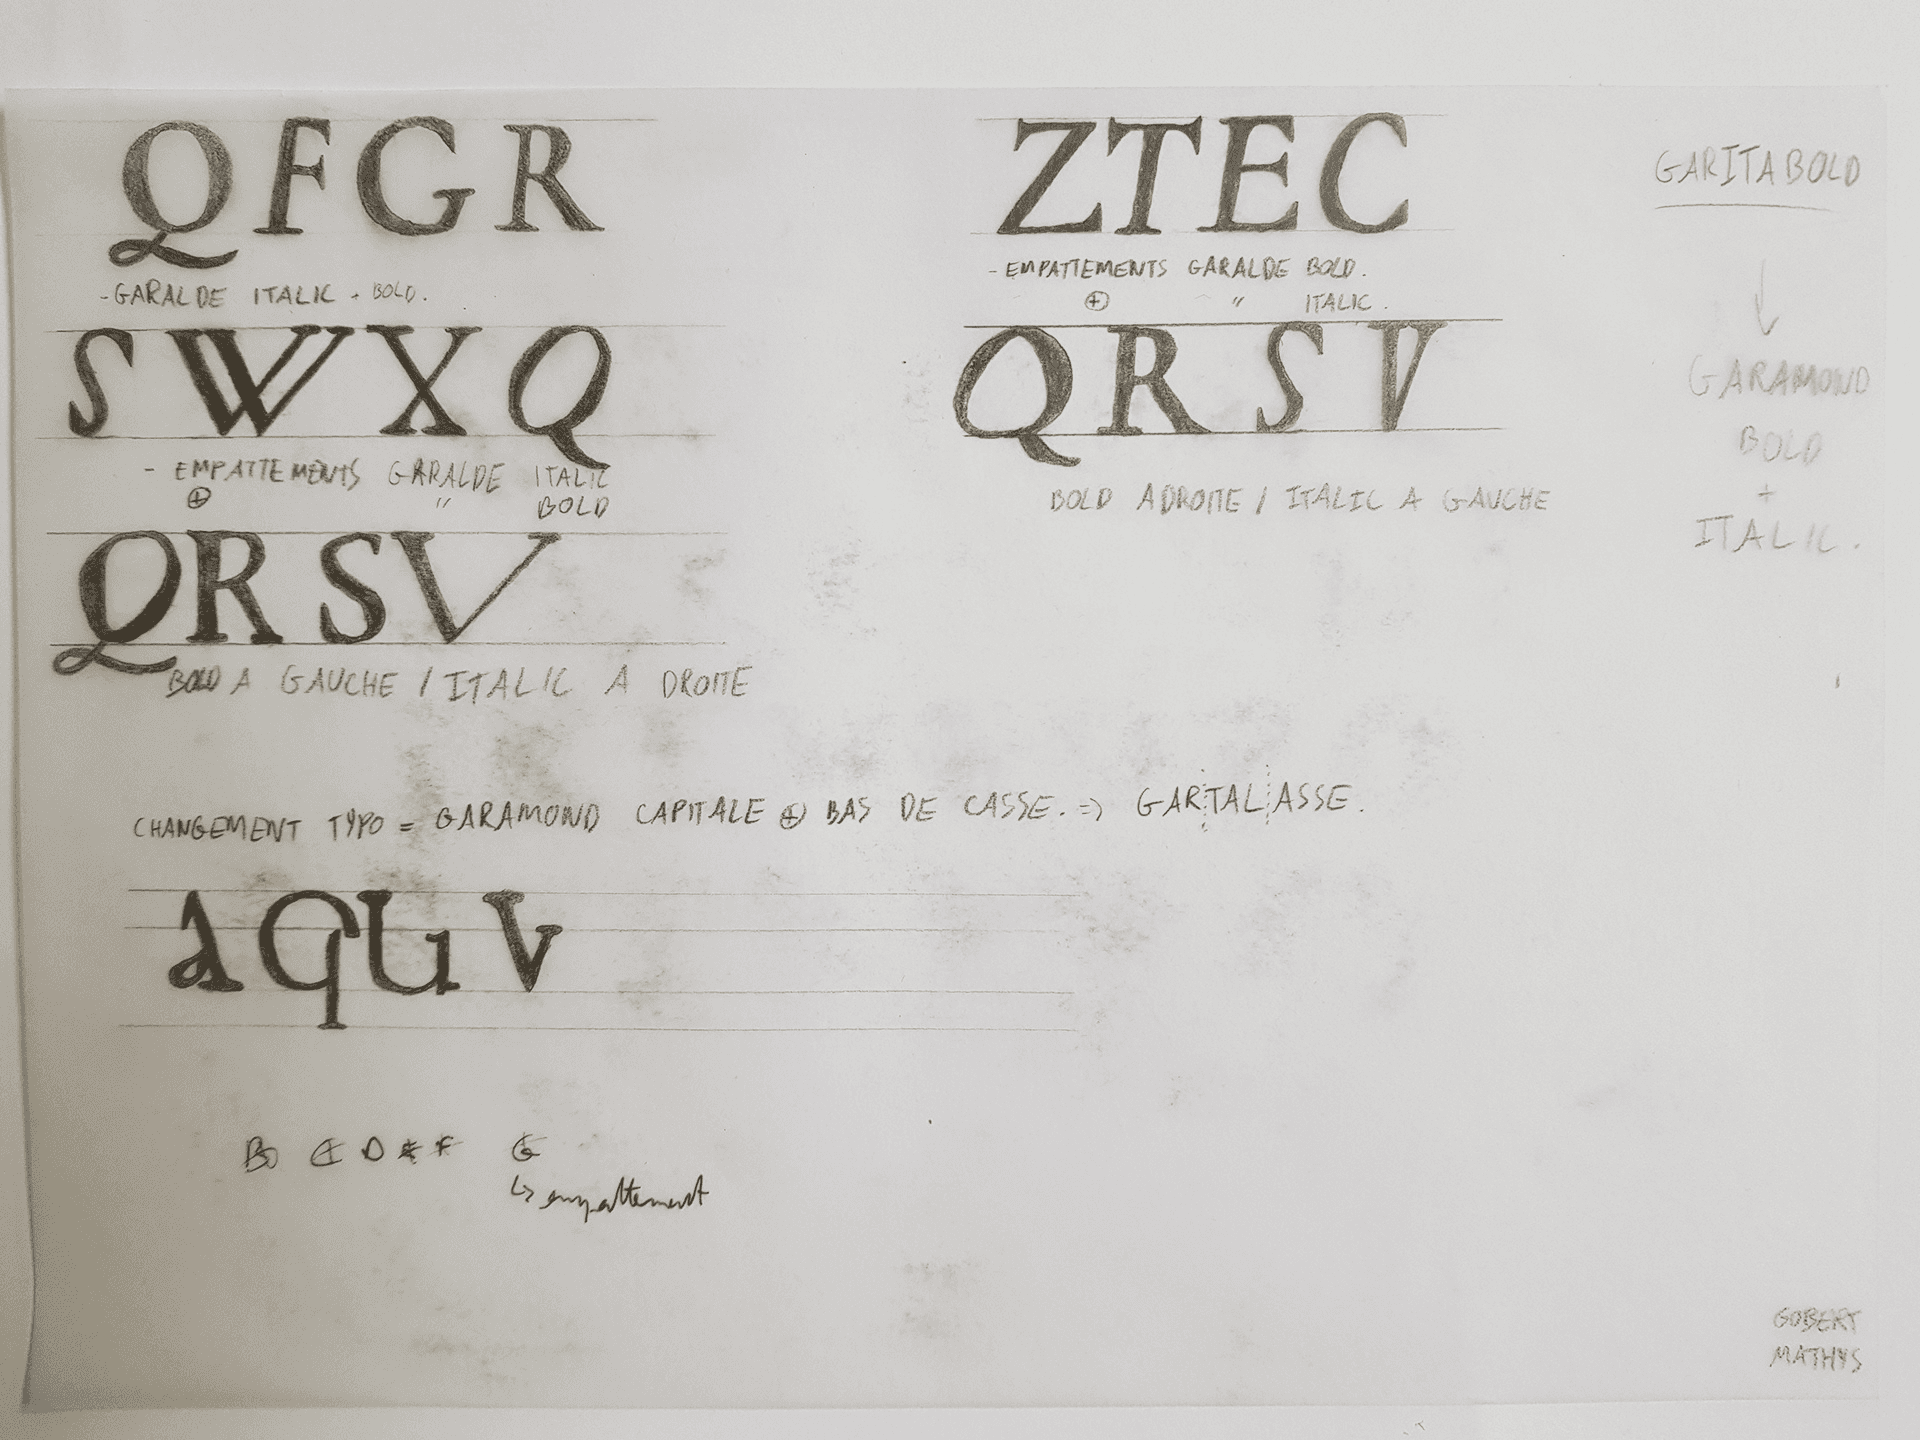 QFGR
-GARALDE ITALIC + BOLD.
SWXQ
- EMPATTEMENTS GARALDE ITALIC
⊕ " BOLD
QRSV
BOLD A GAUCHE / ITALIC A DROITE
ZTEC
- EMPATTEMENTS GARALDE BOLD.
⊕ " ITALIC.
QRSV
BOLD A DROITE / ITALIC A GAUCHE
GARITABOLD
↓
GARAMOND
BOLD
+
ITALIC.
CHANGEMENT TYPO = GARAMOND CAPITALE ⊕ BAS DE CASSE. => GARTALASSE.
AQUV
B C D E F G
↳ empattement
GOBERT
MATHYS